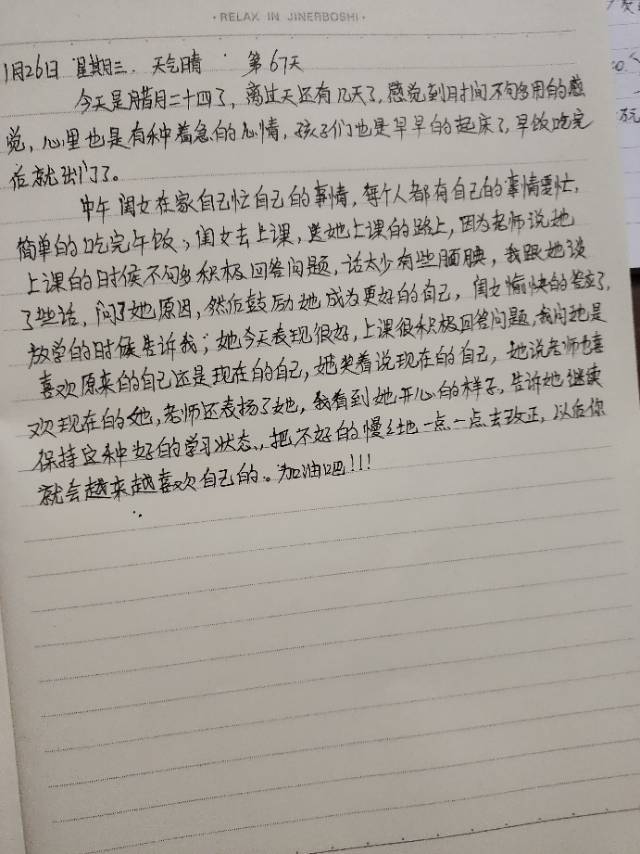 · RELAX IN JINERBOSHI ·
1月26日 星期三. 天气晴 第67天
今天是腊月二十四了，离过天还有几天了，感觉到时间不够用的感
觉，心里也是有种着急的心情，孩子们也是早早的起床了，早饭吃完
后就出门了。
中午闺女在家自己忙自己的事情，每个人都有自己的事情要忙，
简单的吃完午饭，闺女去上课，送她上课的路上，因为老师说她
上课的时候不够积极回答问题，话太少有些腼腆，我跟她谈
了些话，问了她原因，然后鼓励她成为更好的自己，闺女愉快的答应了，
放学的时候告诉我；她今天表现很好，上课很积极回答问题，我问她是
喜欢原来的自己还是现在的自己，她笑着说现在的自己，她说老师也喜
欢现在的她，老师还表扬了她，我看到她开心的样子，告诉她继续
保持这种好的学习状态，把不好的慢慢地一点一点去改正，以后你
就会越来越喜欢自己的。加油吧!!!